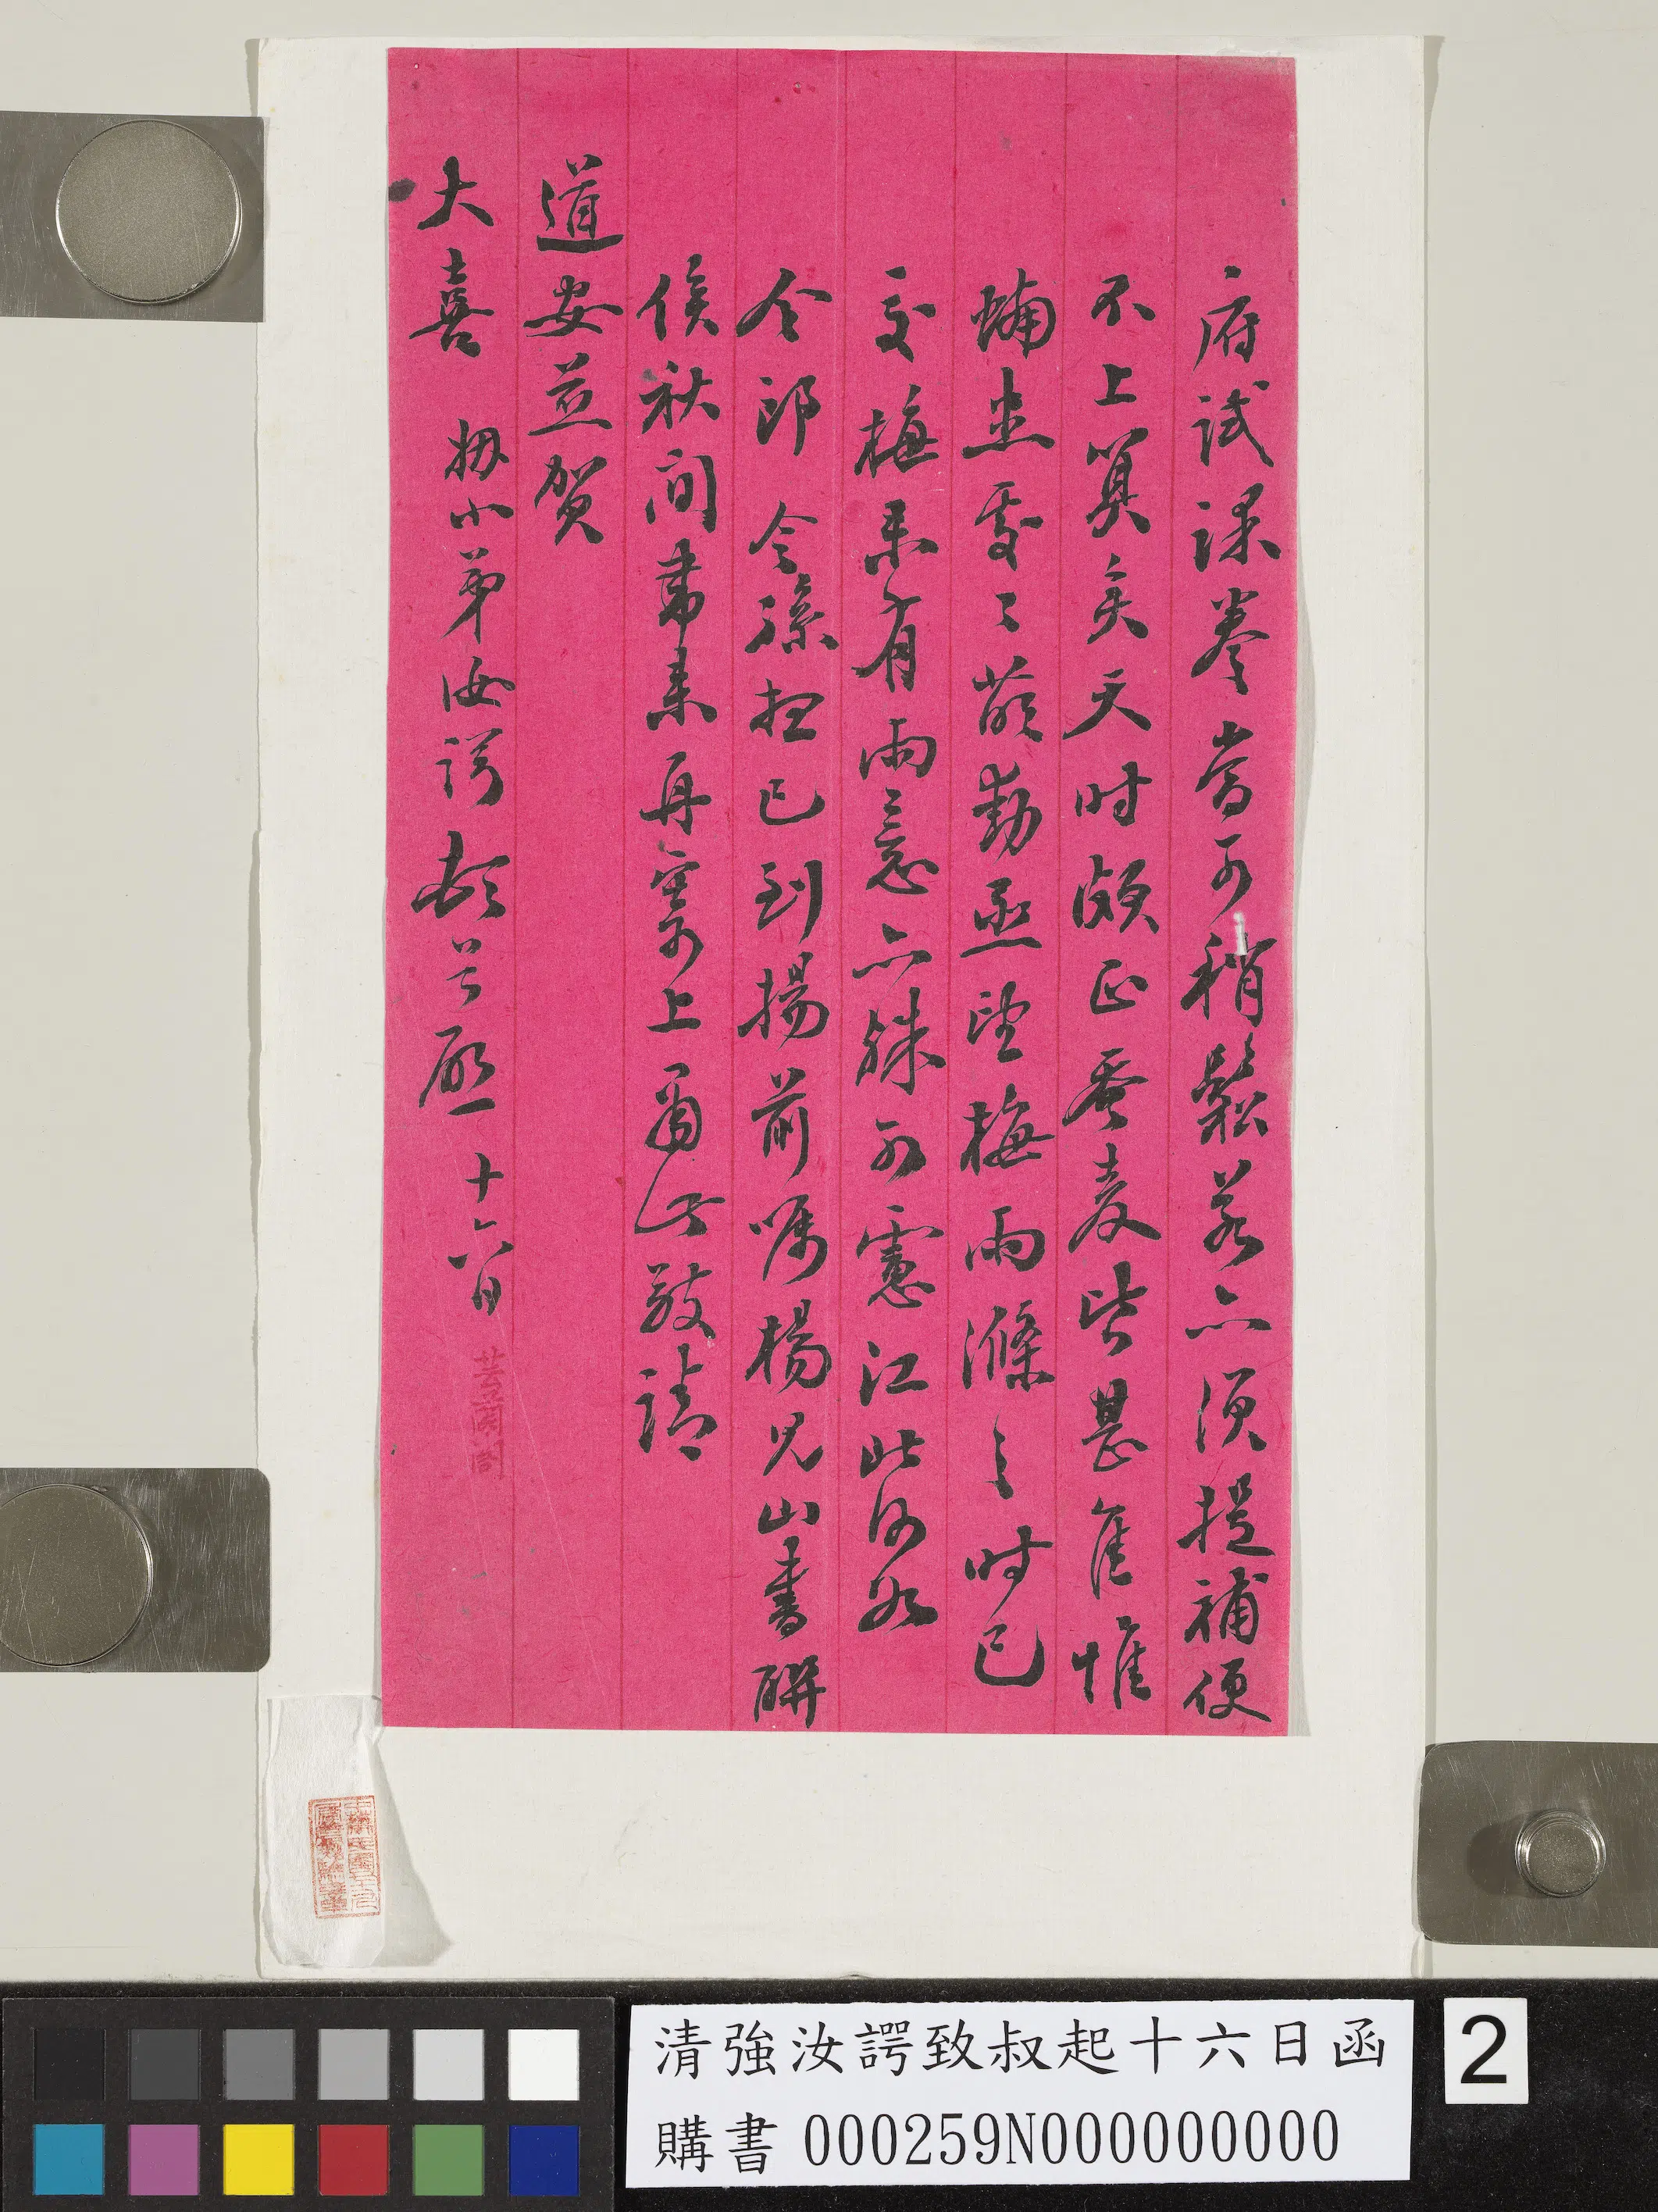 府試課卷當可稍鬆若亦須提補便
不上算矣天時頗正蠶麥皆甚佳惟
蝻患處處萌動亟望梅雨滌之時已
交梅果有雨意亦殊可慮江北何如
令郎令孫想已到揚前囑楊兄山書聯
俟秋間帶來再寄上肅此敬請
道安並賀
大喜 姻小弟汝諤頓首啟 十六日
清強汝諤致叔起十六日函
購書000259N000000000
2